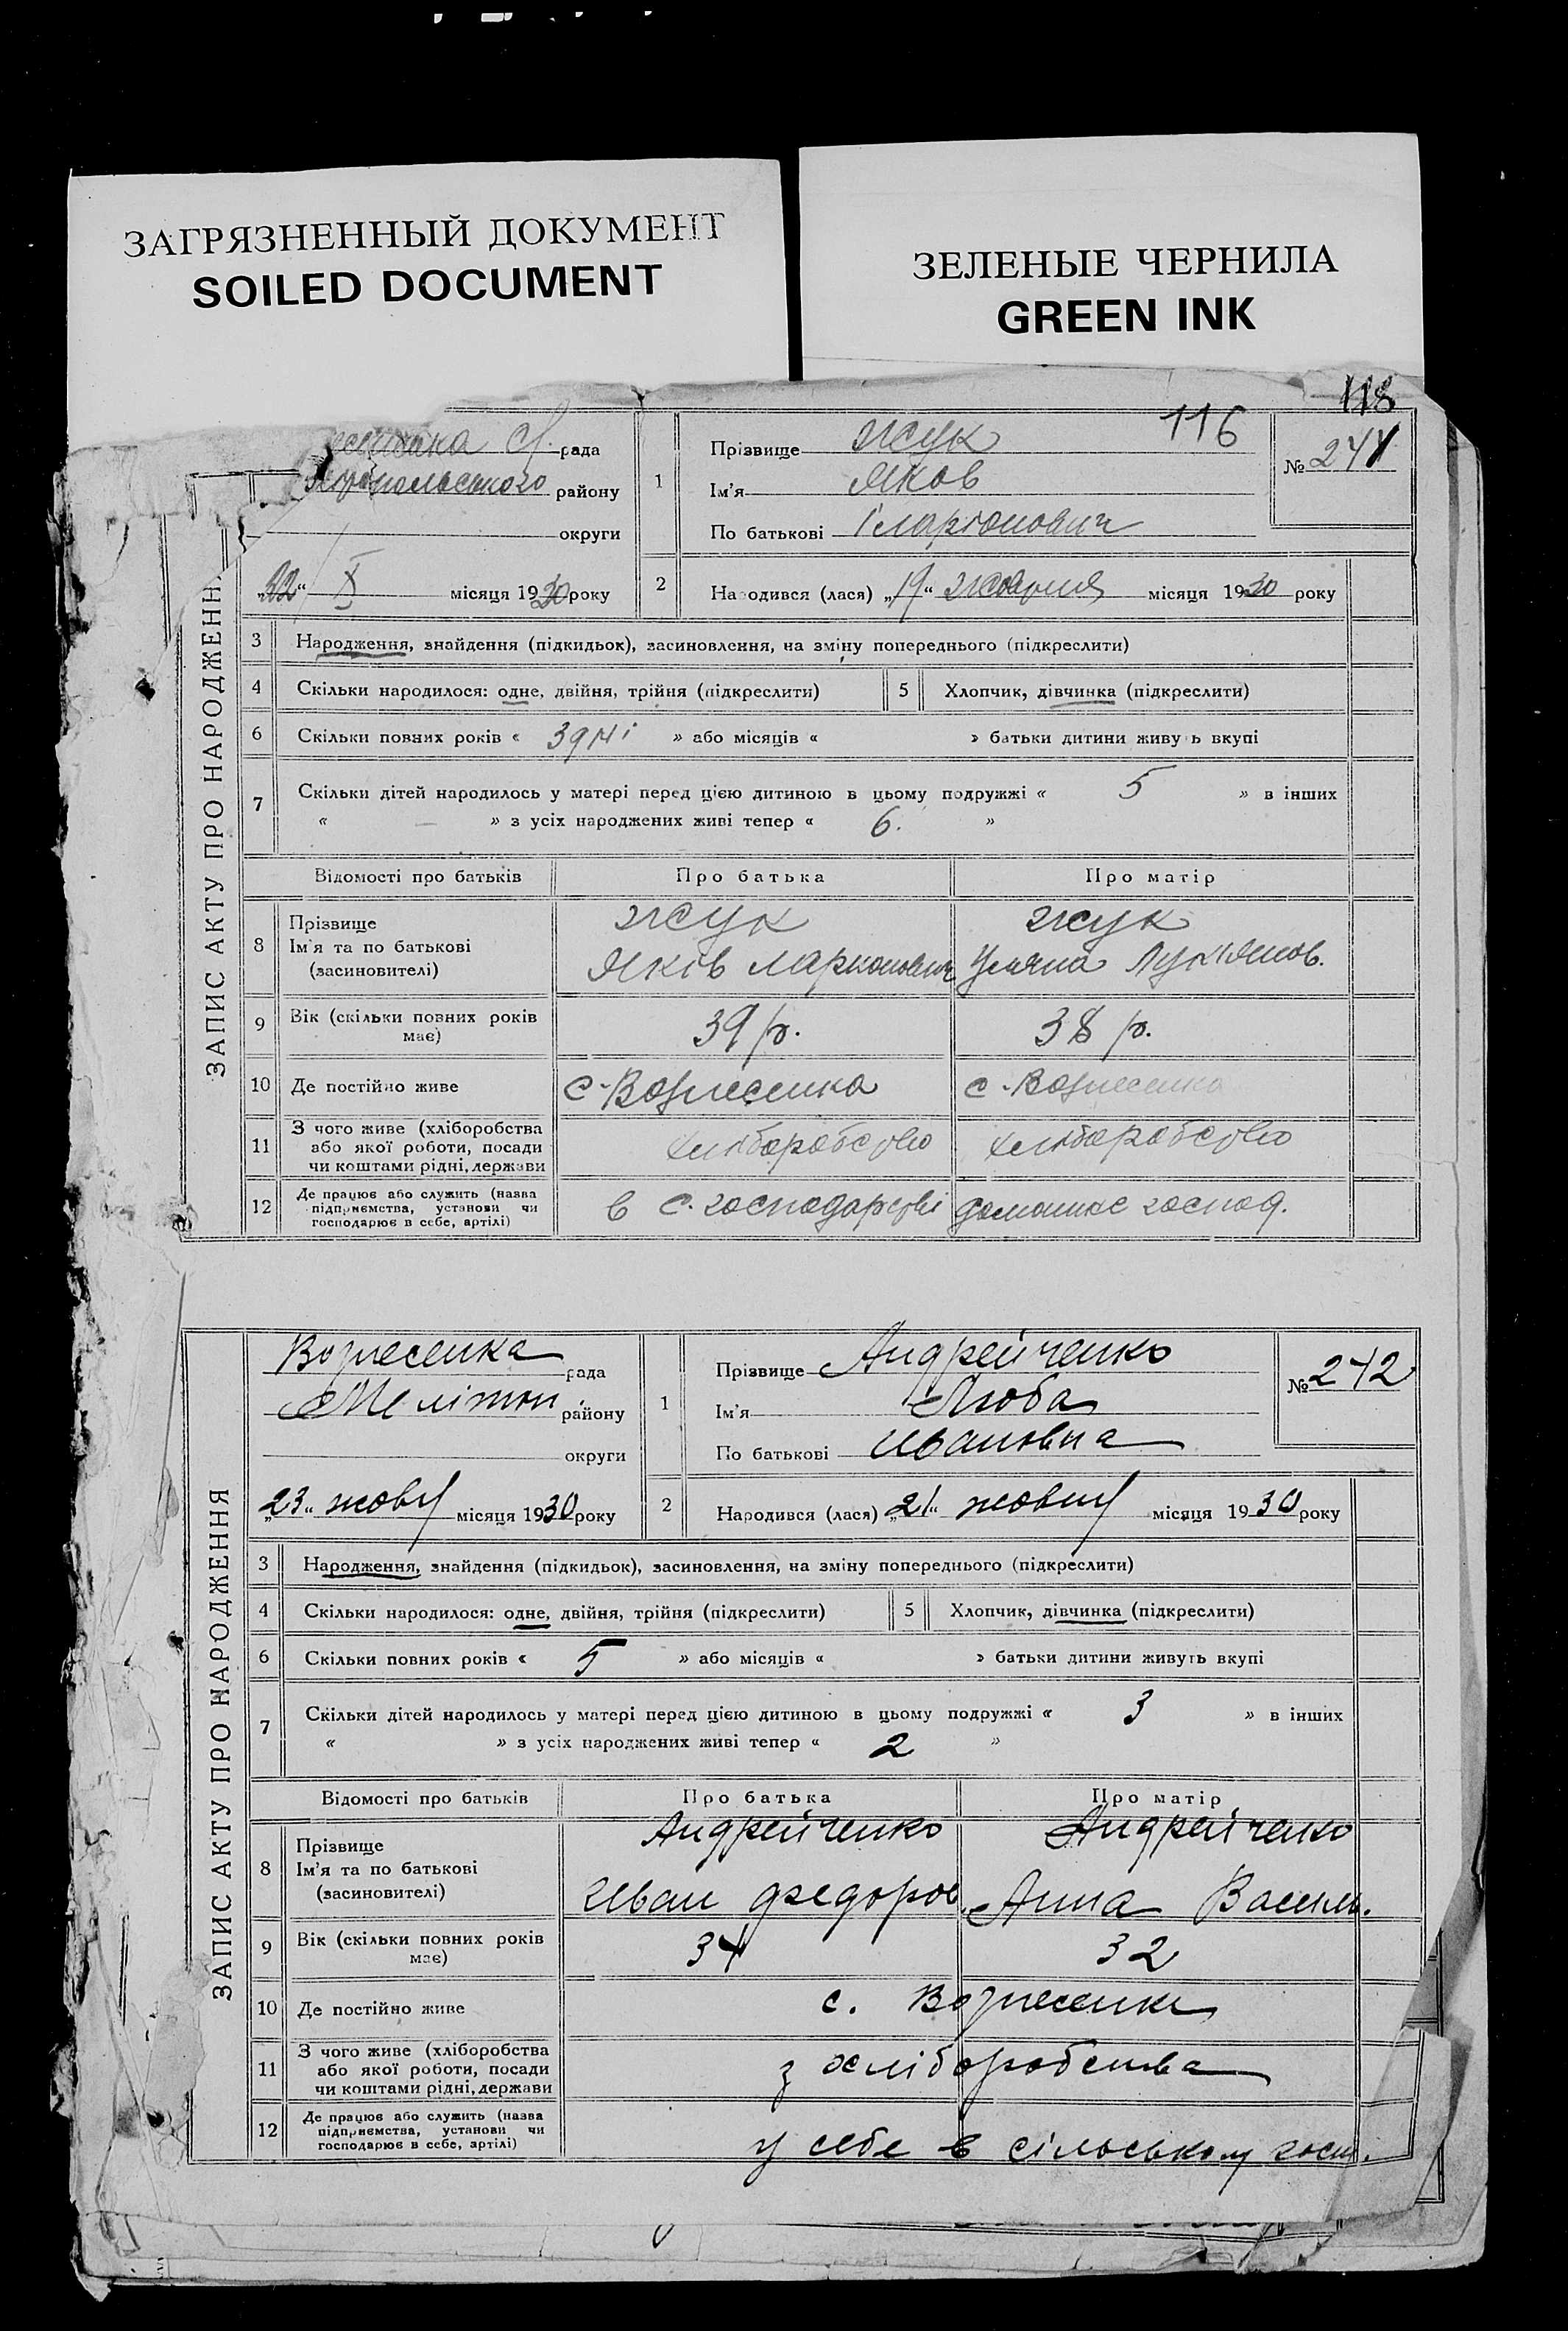 ЗАГРЯЗНЕННЫЙ ДОКУМЕНТ
SOILED DOCUMENT
ЗЕЛЕНЫЕ ЧЕРНИЛА
GREEN INK
118
116
рада
району
округи
„22“ X місяця 1930 року
1
Прізвище Жук
Ім'я Яков
По батькові Іларіонович
№ 241
2
Народився (лася) „19“ жовтня місяця 1930 року
ЗАПИС АКТУ ПРО НАРОДЖЕНН
3 Народження, знайдення (підкидьок), засиновлення, на зміну попереднього (підкреслити)
4 Скільки народилося: одне, двійня, трійня (підкреслити) 5 Хлопчик, дівчинка (підкреслити)
6 Скільки повних років « » або місяців « » батьки дитини живуть вкупі
7 Скільки дітей народилось у матері перед цією дитиною в цьому подружжі « 5 » в інших
« — » з усіх народжених живі тепер « 6. »
Відомості про батьків Про батька Про матір
8 Прізвище Жук Жук
Ім'я та по батькові Яків Ларионович Уляна Лук'янов.
(засиновителі)
9 Вік (скільки повних років має) 39 р. 38 р.
10 Де постійно живе с. Вознесенка с. Вознесенка
11 З чого живе (хліборобства або якої роботи, посади чи коштами рідні, держави
12 Де працює або служить (назва підприємства, установи чи господарює в себе, артілі) в с. господарстві домашнє господ.
Вознесенка рада
Мелітоп. району
округи
„23“ жовт місяця 1930 року
1
Прізвище Андрейченко
Ім'я Люба
По батькові Ивановна
№ 242
2
Народився (лася) „21“ жовтн місяця 1930 року
ЗАПИС АКТУ ПРО НАРОДЖЕННЯ
3 Народження, знайдення (підкидьок), засиновлення, на зміну попереднього (підкреслити)
4 Скільки народилося: одне, двійня, трійня (підкреслити) 5 Хлопчик, дівчинка (підкреслити)
6 Скільки повних років « 5 » або місяців « » батьки дитини живуть вкупі
7 Скільки дітей народилось у матері перед цією дитиною в цьому подружжі « 3 » в інших
« » з усіх народжених живі тепер « 2 »
Відомості про батьків Про батька Про матір
8 Прізвище Андрейченко Андрейченко
Ім'я та по батькові Иван Федоров. Анна Василь.
(засиновителі)
9 Вік (скільки повних років має) 34 32
10 Де постійно живе с. Вознесенка
11 З чого живе (хліборобства або якої роботи, посади чи коштами рідні, держави з хліборобства
12 Де працює або служить (назва підприємства, установи чи господарює в себе, артілі) у себе в сільському госп.